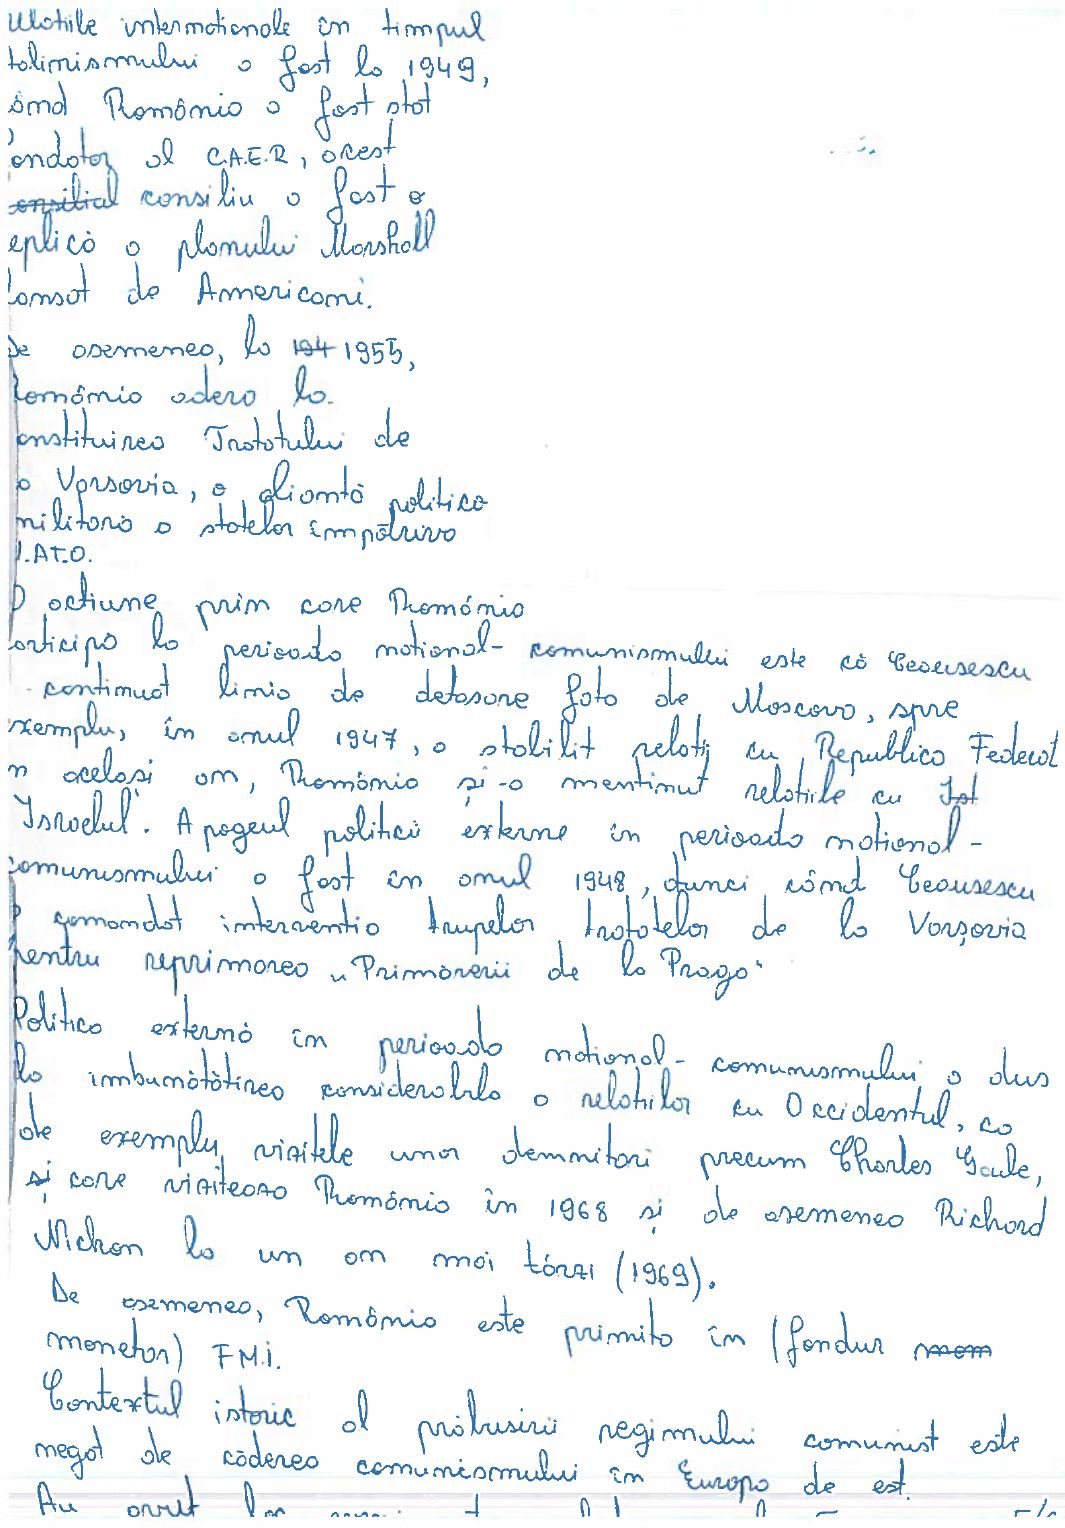 elatiile internationale în timpul
talinismului a fost la 1949,
ând România a fost stat
fondator al C.A.E.R, acest
consilial consiliu a fost o
eplică a planului Marshall
lansat de Americani.
De asemenea, la 194 1955,
România adera la
onstituirea Tratatului de
a Varsovia, o aliantă politică
militară a statelor împătriva
N.A.T.O.
O actiune prin care România
participă la perioada national-comunismului este că Ceausescu
a continuat linia de detasare fata de Moscova, spre
exemplu, în anul 1947, a stabilit relatii cu Republica Federat
n acelasi an, România și-a mentinut relatiile cu Ist
"Israelul". Apogeul politicii externe în perioada national-
comunismului a fost în anul 1948, atunci când Ceausescu
a comandat interventia trupelor tratatelor de la Varșovia
pentru reprimarea "Primăverii de la Praga"
Politica externă în perioada national-comunismului a dus
la imbunătătirea considerabila a relatiilor cu Occidentul, ca
de exemplu, vizitele unor demnitari precum Charles Gaule,
și care viziteaza România în 1968 și de asemenea Richard
Nichon la un an mai tărzi (1969).
De asemenea, România este primita în (fondur mon
monetar) FM.I.
Contextul istoric al prăbusirii regimului comunist este
negat de căderea comunismului în Europa de est.
Au avut loc